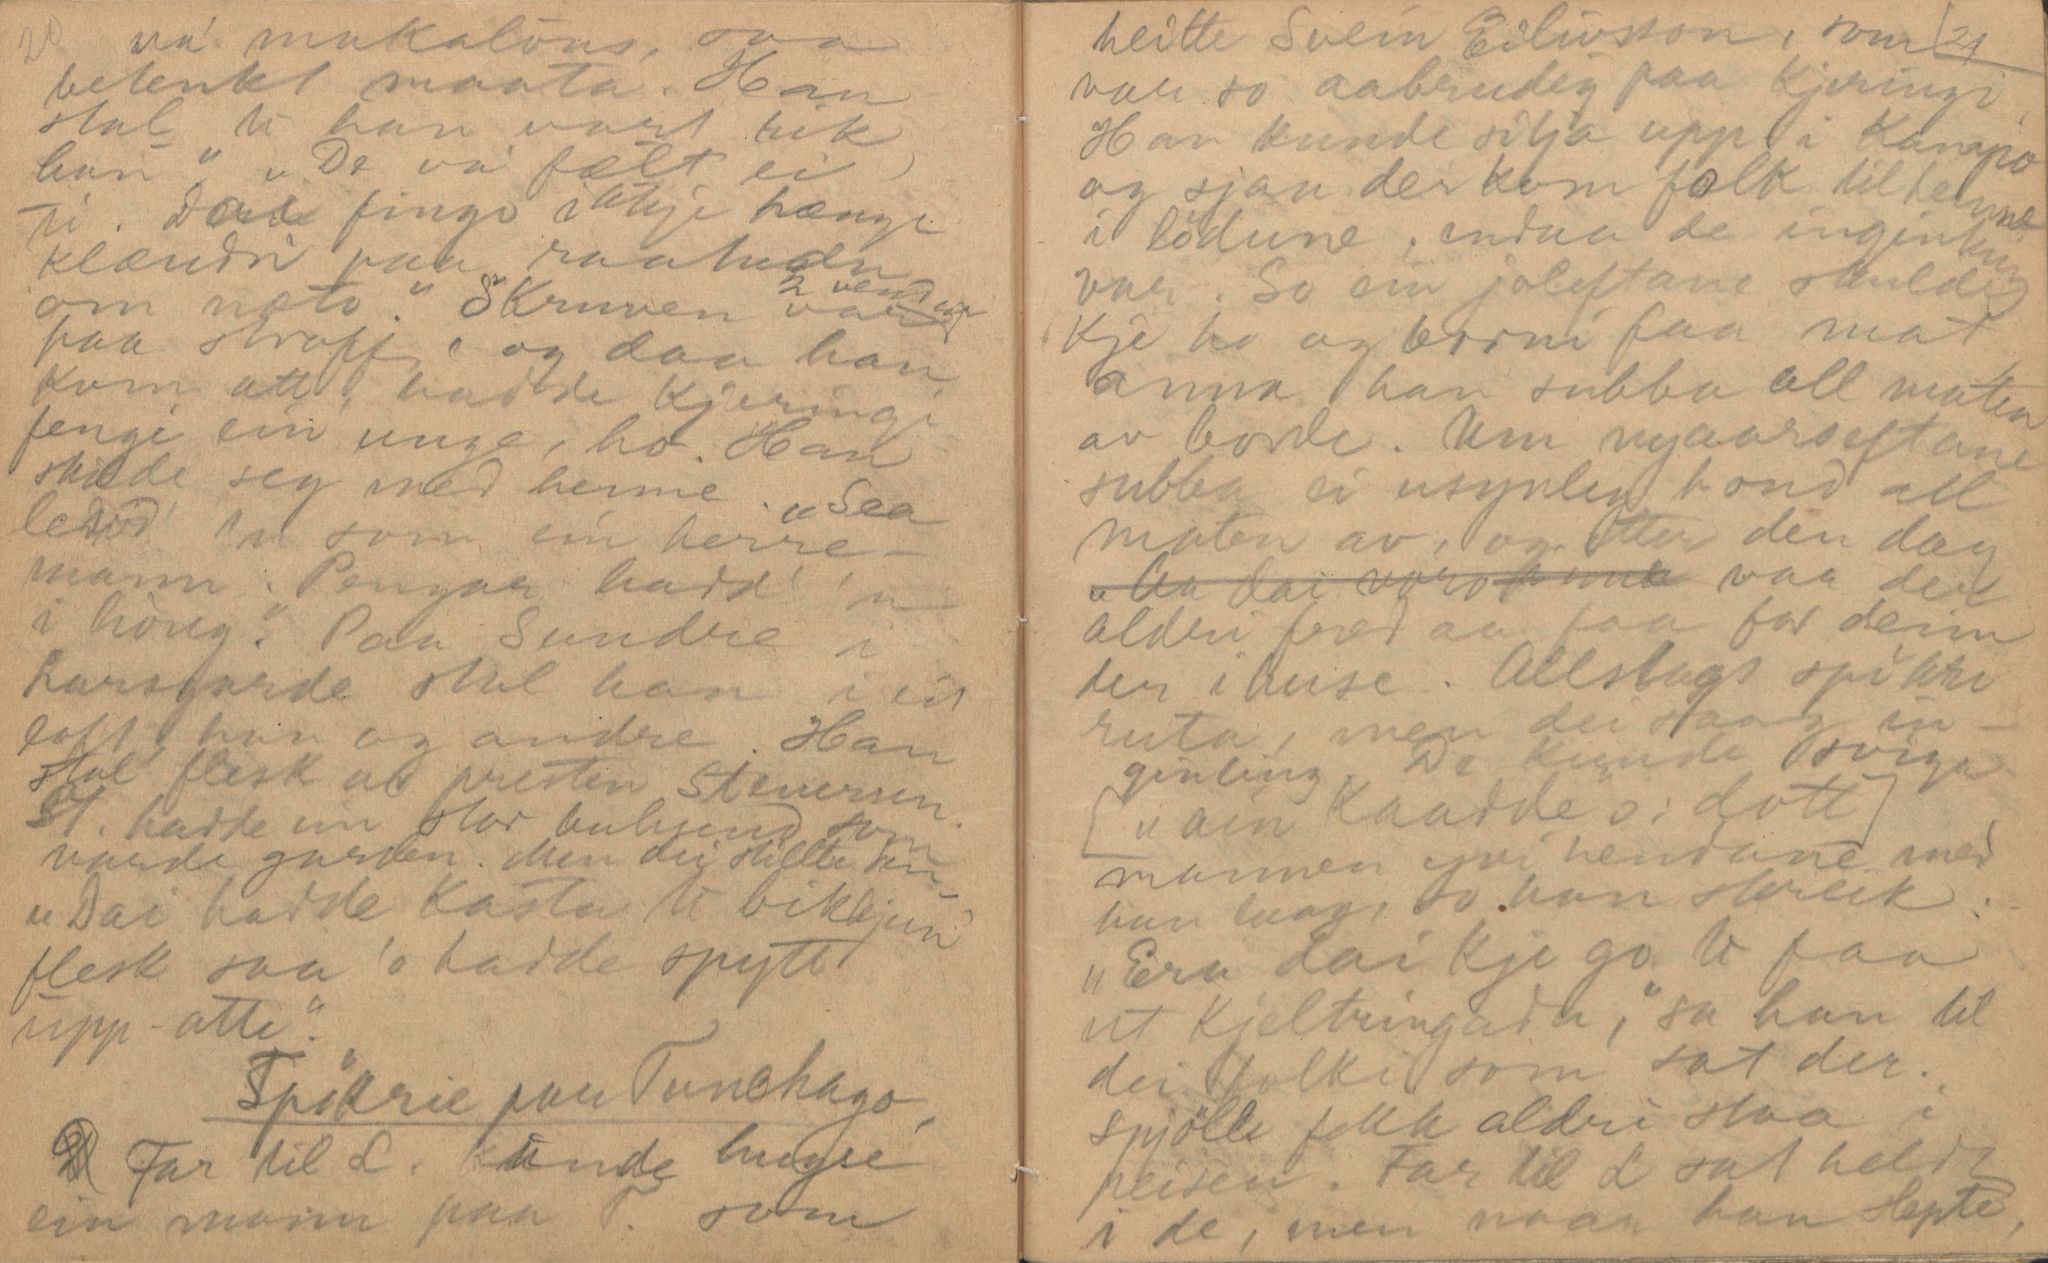 20
va' makalöus, saa
betenkt maata. Han
stal 'ti han vart rik
han". "De va' fælt ei
ti. Dai fingo ikkje hænge
klændi paa raatuedn
om nöto." Skruven var 2 vendur
paa straff, og daa han
kom att, hadde kjeringi
fengi ein unge, ho. Han
skilde seg med henne. "Sea
levde 'n som ein herre-
mann. Pengar hadd' 'n
i haug". Paa Sundre i
harsgarde stal han i eit
loft han og andre. Han
stal flesk aa presten Stenersen.
St. hadde ein stor buhund som
varde garden. Men dei stillte han
"Dai hadde kasta ti bikkjun
flesk saa 'o hadde spytt
upp-atte".
Spökrie paa Tunehago,
Far til L. kunde hugse
ein mann paa T. som
21
heitte Svein Eilivsson, som
var so aabrudig paa kjeringi
Han kunde sitja uppi Kampo
og sjaa der kom folk til henne
i lödune, endaa de ingin
var. So ein joleftane skulde
kje ho og borni faa mat
anna han subba all maten
av borde. Um nyaarseftane
subba ei usynleg hond all
maten av, og etter den dag
vaa der
aldri fred aa faa for deim
der i huse. Allslags spikke
ruta, men dei saag in-
ginting. De kunde sviga
["ein kaadde o: dott]
mannen yvi hendane med
han laag, so han skreik:
"Era dai kje go ti faa
ut kjeltringadn," sa han til
dei folki som sat der.
spjölle fekk aldri staa i
peisen. Far til L sat heldt
i de, men naar han slepte,